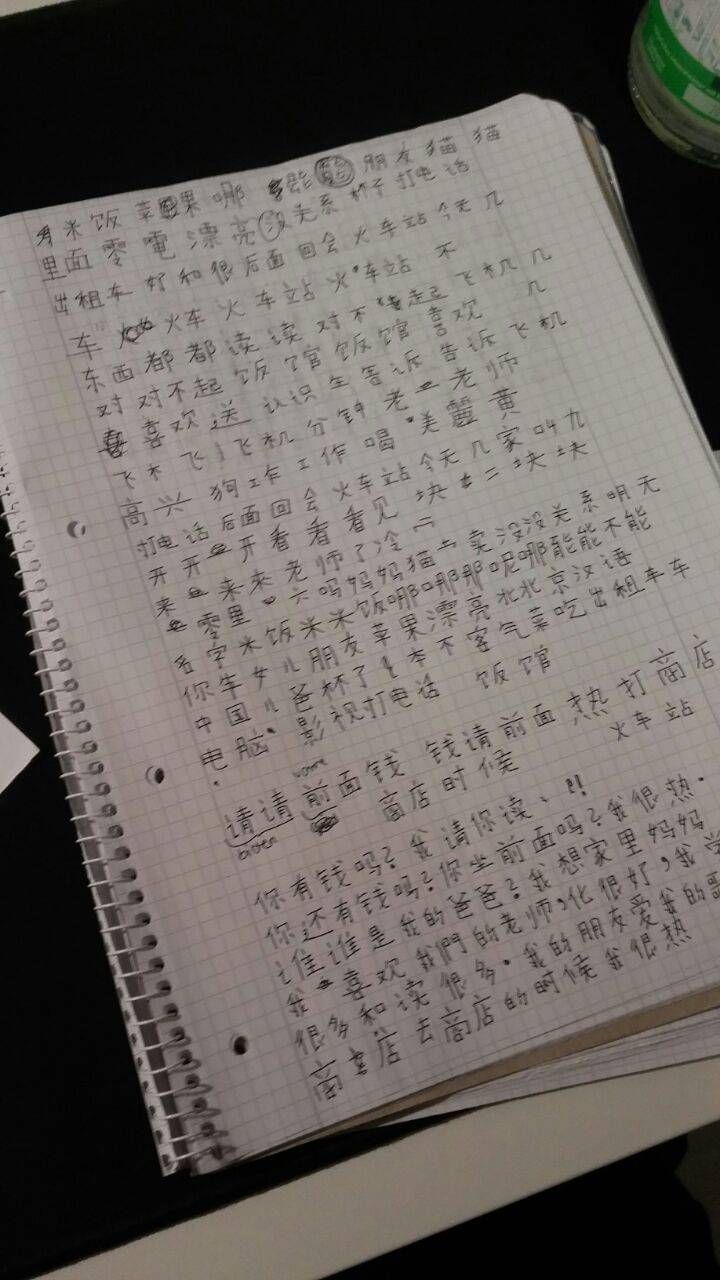 米饭 苹果 哪 能 朋友 猫 猫
里面 零 電 漂亮 没关系 杯子 打电话
出租车 好 和 很 后面 回 会 火车站 今天 几
车 火车 火车站 火车站 不
东西 都 都 读 读 对不起 飞机 几
对 对不起 饭馆 饭馆 喜欢 几
喜 喜欢 送 认识 生 告诉 告诉 飞机
飞 飞机 分钟 老 老师
高兴 狗 工作 工作 喝 美 黄
打电话 后面 回 会 火车站 今天 几 家 叫 九
开 开 开 看 看 看见 块 二 块 块
来 来 來 老师 了 冷
零 里 六 吗 妈妈 猫 卖 没 没关系 明天
名字 米饭 米 米饭 哪 哪 那 呢 哪 能 能 不能
你 年 女儿 朋友 苹果 漂亮 北 北京 汉语
中国 儿 爸 杯 了 本 不客气 菜 吃 出租车 车
电脑 影视 打电话 饭馆
vorne
请 请 前面 钱 钱 请 前面 热 打 商店
bitten
商店 时候 火车站
你有钱吗?我请你读、!!
你还有钱吗?你坐前面吗?我很热.
谁谁是我的爸爸?我想家里妈妈.
我 喜欢我們的老师,化很好,我学
很多和读很多.我的朋友爱我的
商 店 去商店的时候我很热